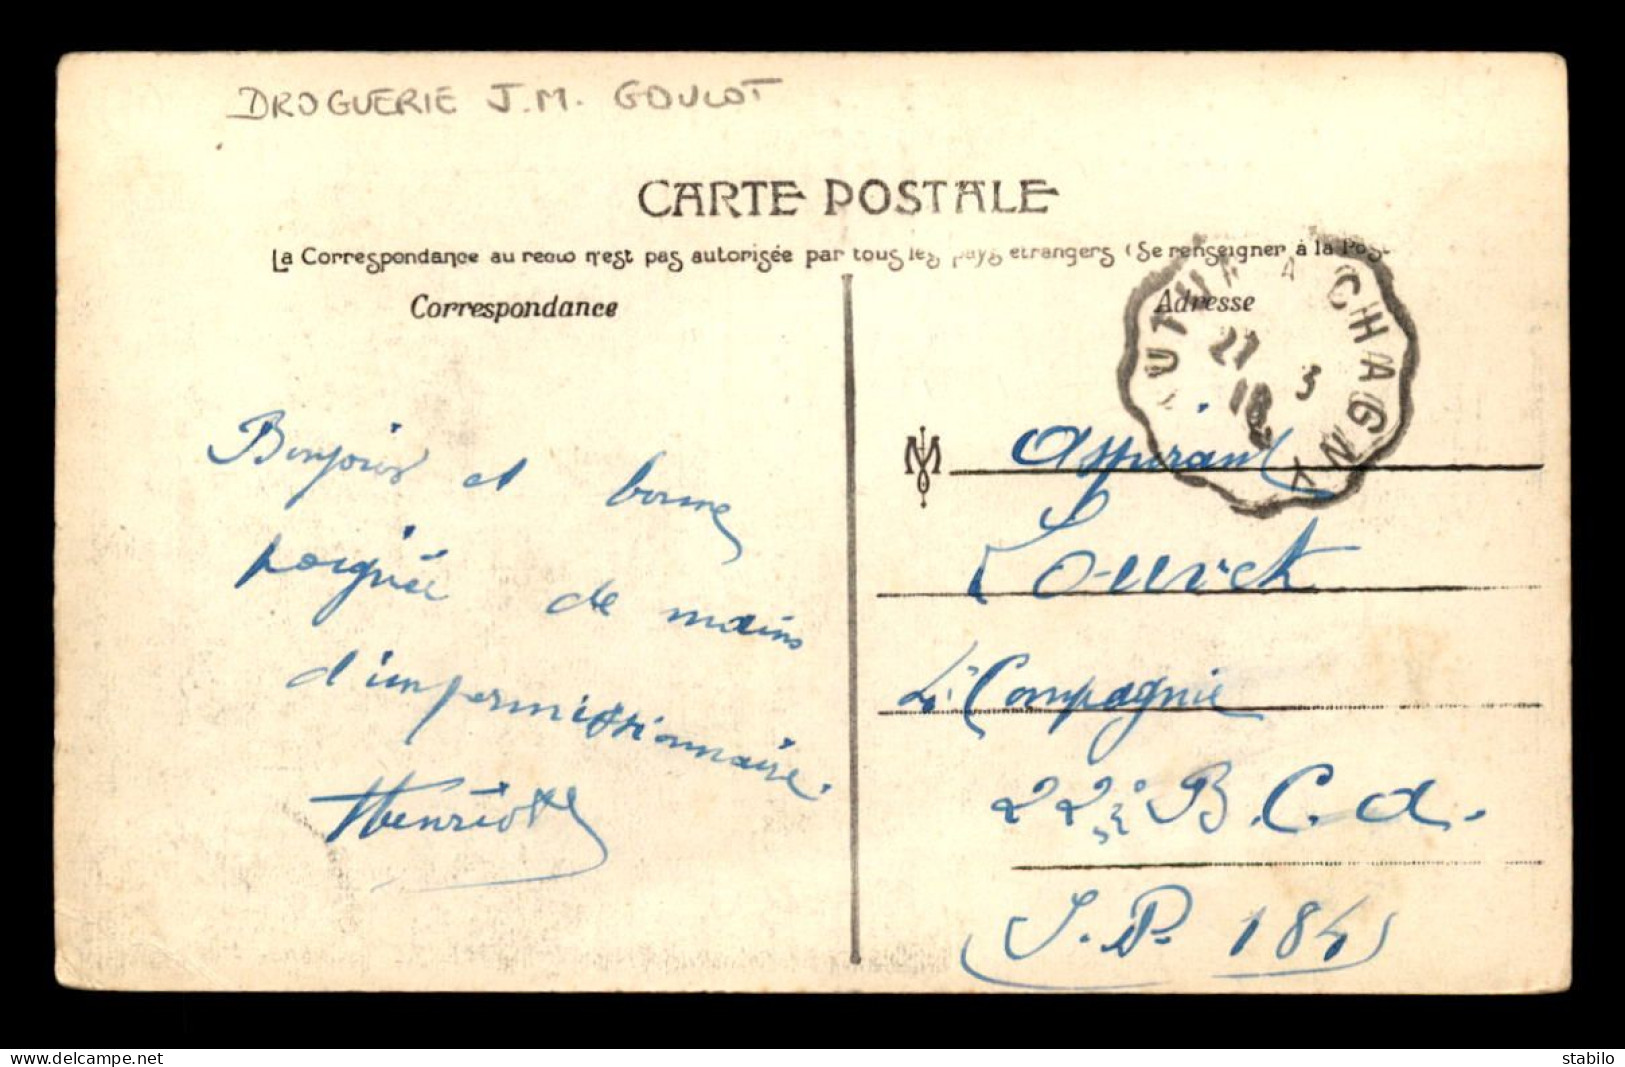 DROGUERIE J.M. GOULOT
CARTE POSTALE
La Correspondance au recto n'est pas autorisée par tous les pays étrangers (Se renseigner à la Poste
Correspondance
Adresse
AUTUN A CHAGNY
27 3
18
Bonjour et bonne
poignée de mains
d'un permissionnaire.
Aspirant
Louvet
Compagnie
22e B.C.A.
S.P. 184
delcampe.net
stabilo